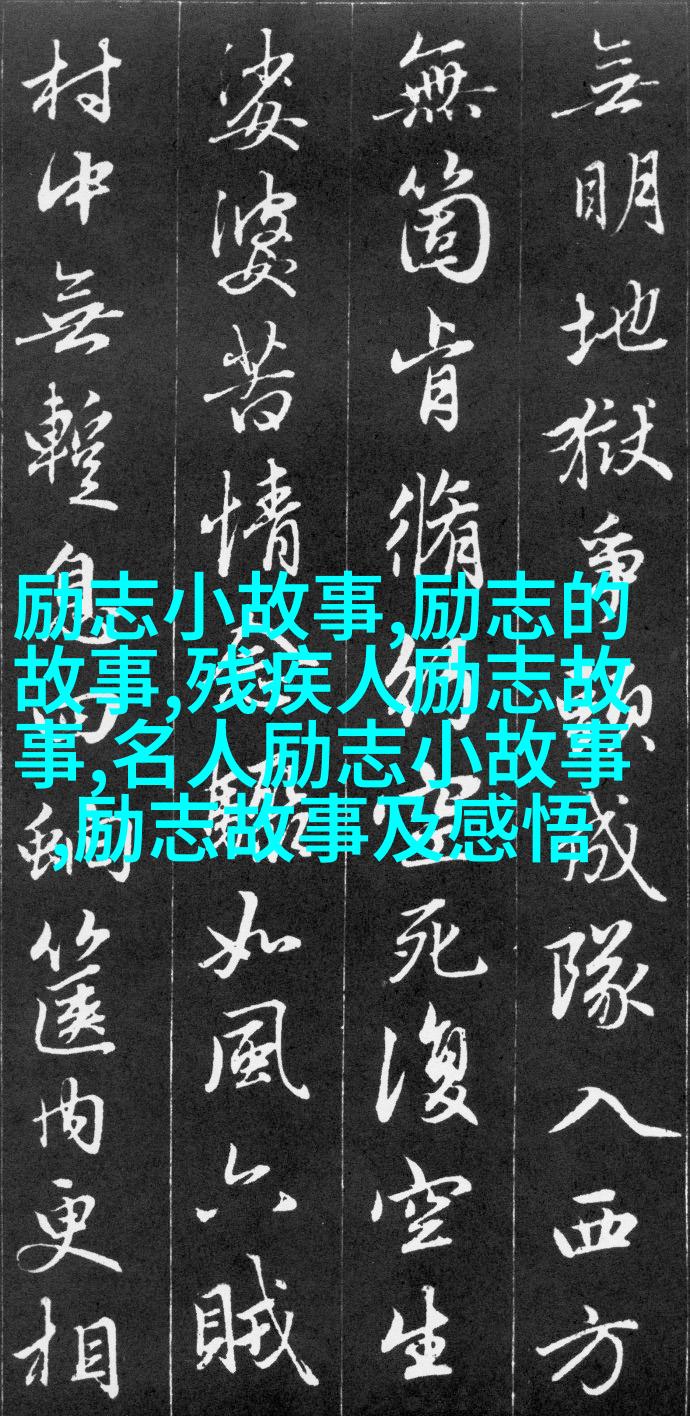 無明地獄爭頭成隊入西方
無箇肯脩空死復空生
娑婆苦情貪如風六賊
村中無蹔息篋内更相
励志小故事,励志的
故事,残疾人励志故
事,名人励志小故事
,励志故事及感悟